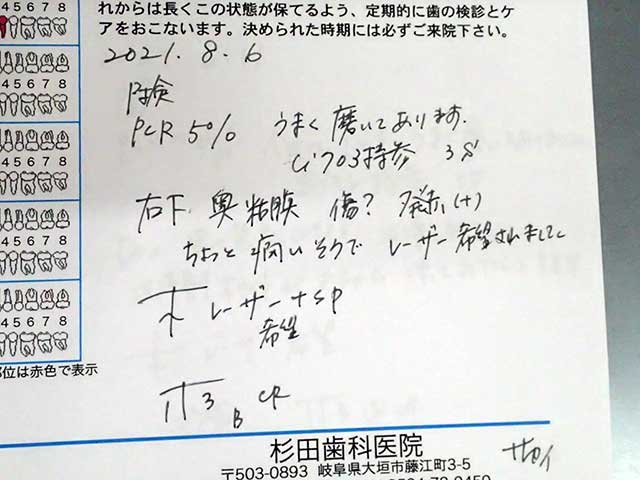 れからは長くこの状態が保てるよう、定期的に歯の検診とケ
アをおこないます。決められた時期には必ずご来院下さい。
45678
2021.8.6
45678
PCR 5% うまく磨いてあります.
Ci703持参 3S
45678
右下 奥 粘膜 傷? 発赤(+)
ちょっと痛いそうで レーザー希望されました
45678
レーザー+SP
希望
45678
部位は赤色で表示
3 B CR
杉田歯科医院
〒503-0893 岐阜県大垣市藤江町3-5